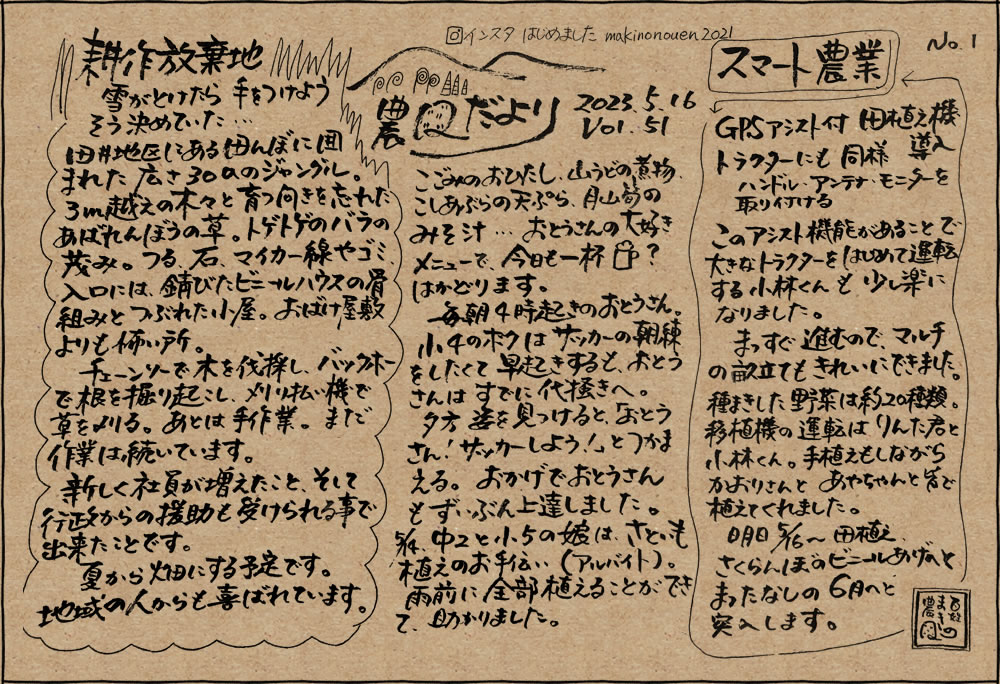 インスタ はじめました makinonouen2021
No.1
農園だより
2023.5.16
Vol.51
耕作放棄地
雪がとけたら 手をつけよう
そう決めていた…
田井地区にある田んぼに囲
まれた 広さ30aのジャングル。
3m越えの木々と 育つ向きを忘れた
あばれんぼうの草。トゲトゲのバラの
茂み。つる、石、マイカー線やゴミ、
入口には、錆びたビニールハウスの骨
組みと つぶれた小屋。おばけ屋敷
よりも怖い所。
チェーンソーで木を伐採し、バックホー
で根を掘り起こし、刈り払い機で
草を刈る。あとは手作業。まだ
作業は続いています。
新しく社員が増えたこと、そして
行政からの援助も受けられる事で
出来たことです。
夏から畑にする予定です。
地域の人からも喜ばれています。
こごみのおひたし、山うどの煮物、
こしあぶらの天ぷら、月山筍の
みそ汁… おとうさんの大好き
メニューで、今日も一杯?
はかどります。
毎朝4時起きのおとうさん。
小4のボクはサッカーの朝練
をしたくて早起きすると、おとう
さんはすでに代掻きへ。
夕方 姿を見つけると、「おとう
さん!サッカーしよう!」とつかま
える。 おかげでおとうさん
もずいぶん上達しました。
5/4、中2と小5の娘は、さといも
植えのお手伝い(アルバイト)。
雨前に全部植えることができ
て、助かりました。
スマート農業
GPSアシスト付 田植え機
導入
トラクターにも 同様
ハンドル・アンテナ・モニターを
取り付ける
このアシスト機能があることで
大きなトラクターをはじめて運転
する小林くんも 少し楽に
なりました。
まっすぐ進むので、マルチ
の畝立てもきれいにできました。
種まきした野菜は約20種類。
移植機の運転はりんた君と
小林くん。手植えもしながら
かおりさんと あやちゃんと皆で
植えてくれました。
明日 5/16〜 田植え、
さくらんぼのビニールあげへと
まったなしの 6月へと
突入します。
まきの
農園